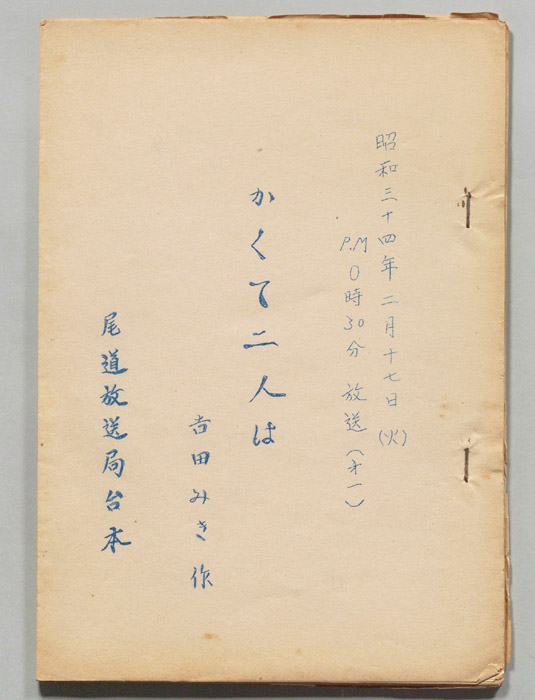 昭和三十四年二月十七日(火)
P.M0時30分放送(才一)
かくて二人は
吉田みき作
尾道放送局台本